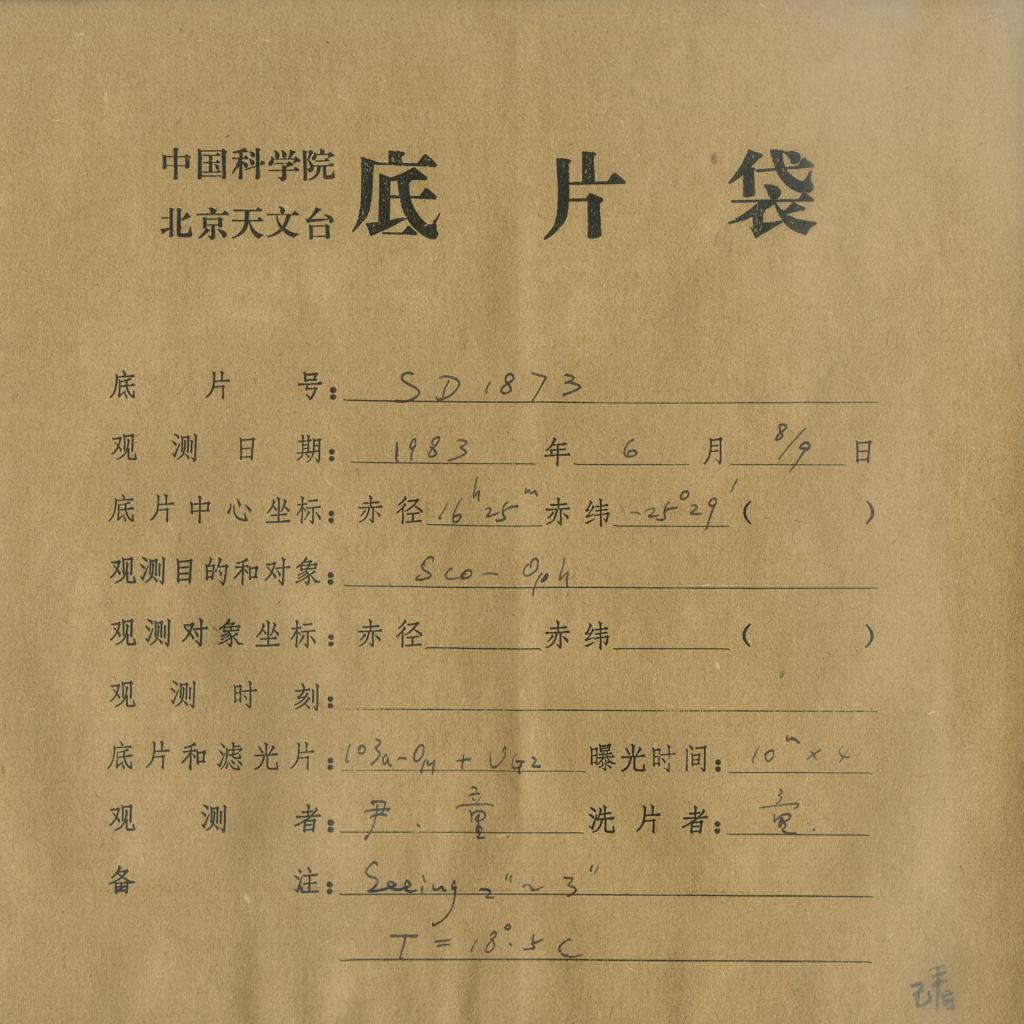 中国科学院
北京天文台
底片袋
底片号：SD1873
观测日期：1983年6月8/9日
底片中心坐标：赤径16h25m赤纬-25°29′（ ）
观测目的和对象：Sco-Oph
观测对象坐标：赤径 赤纬 （ ）
观测时刻：
底片和滤光片：103a-OM + UG2 曝光时间：10m×4
观测者：尹.童. 洗片者：童.
备注：Seeing 2″~3″
T = 18°.5 C